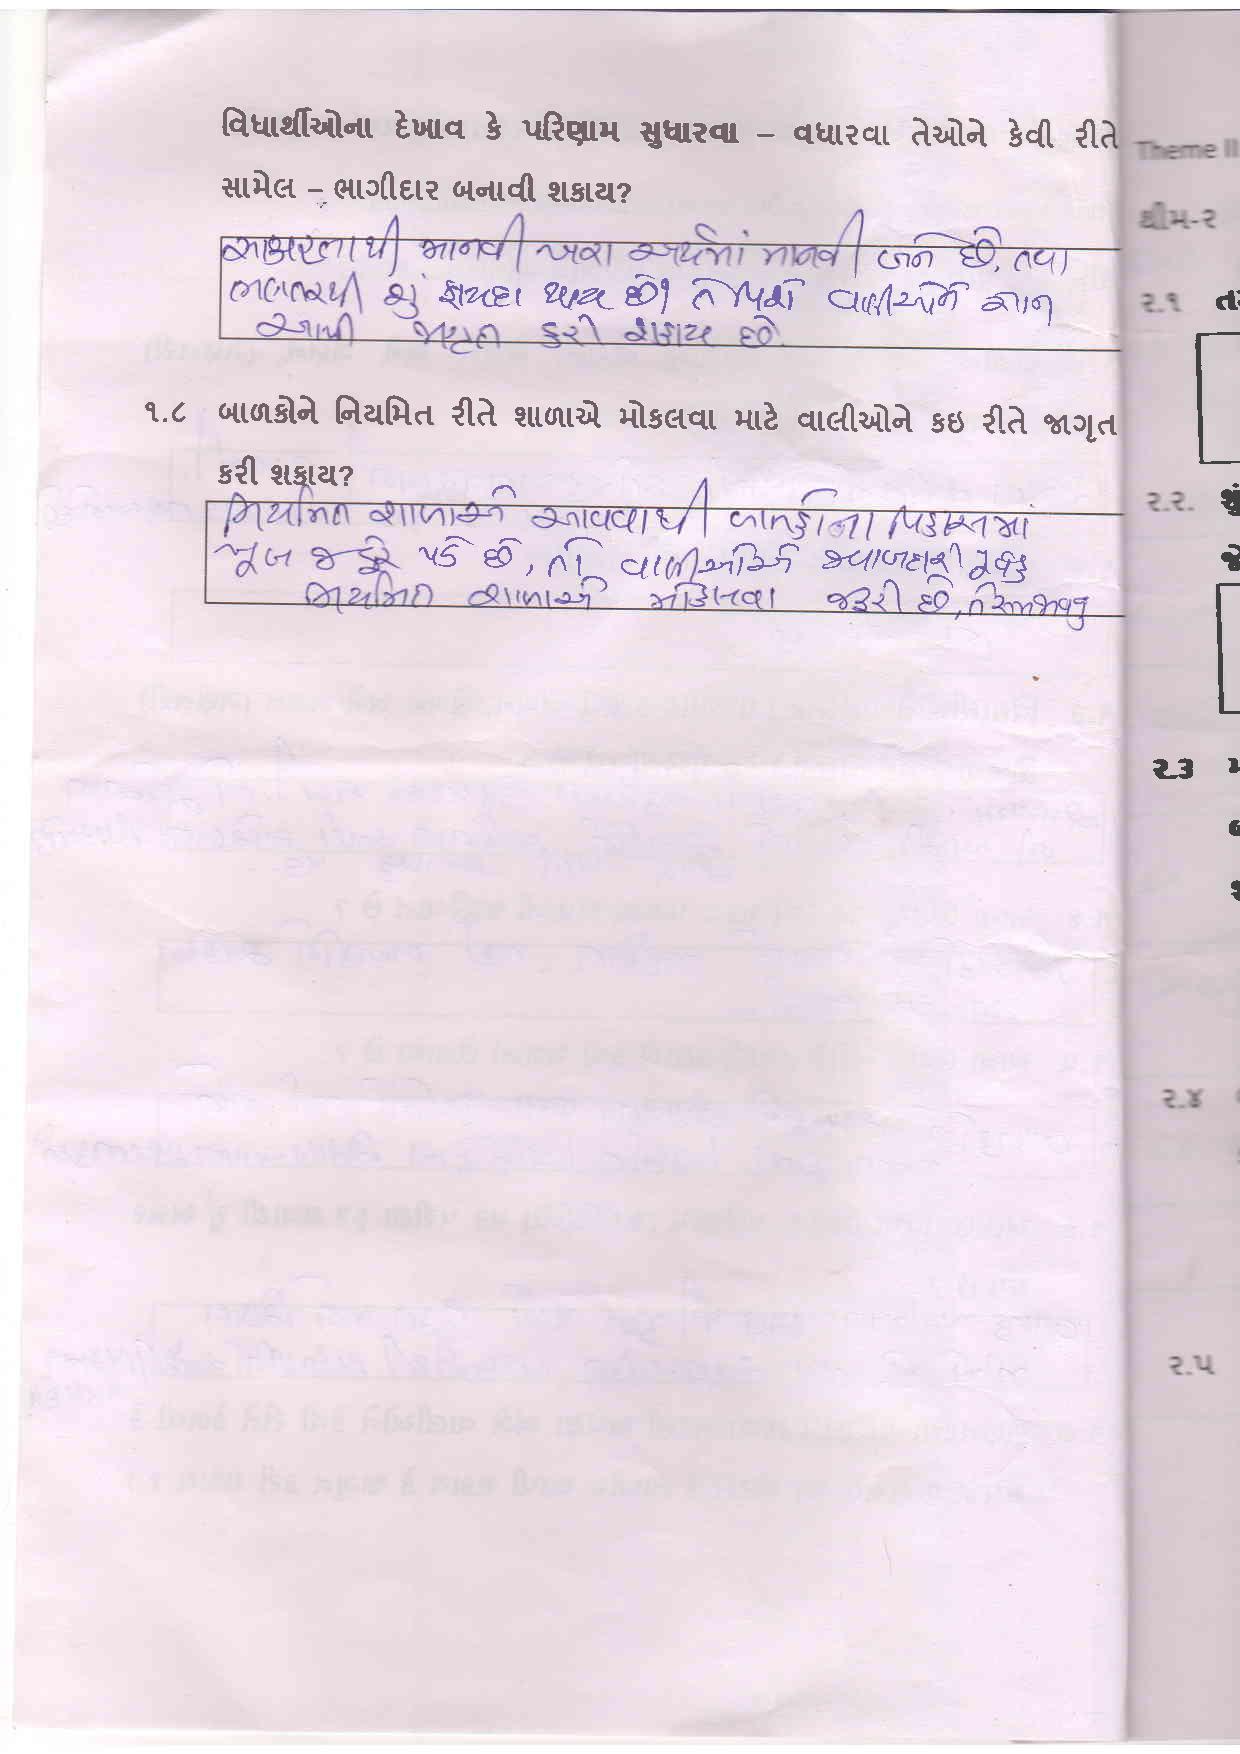 વિધાર્થીઓના દેખાવ કે પરિણામ સુધારવા – વધારવા તેઓને કેવી રીતે
સામેલ – ભાગીદાર બનાવી શકાય?
સાક્ષરતાથી માનવી ખરા અર્થમાં માનવી બને છે, તથા
ભણતરથી શું ફાયદા થાય છે? તે વિશે વાલીઓને જ્ઞાન
આપી જાગૃત કરી શકાય છે.
૧.૮ બાળકોને નિયમિત રીતે શાળાએ મોકલવા માટે વાલીઓને કઇ રીતે જાગૃત
કરી શકાય?
નિયમિત શાળાએ આવવાથી બાળકોના વિકાસમાં
ખૂબ જ ફેર પડે છે, તો વાલીઓએ જવાબદારી પૂર્વક
નિયમિત શાળાએ મોકલવા જરૂરી છે, તે સમજાવવું
Theme II
થીમ-૨
૨.૧
૨.૨.
૨.૩
૨.૪
૨.૫